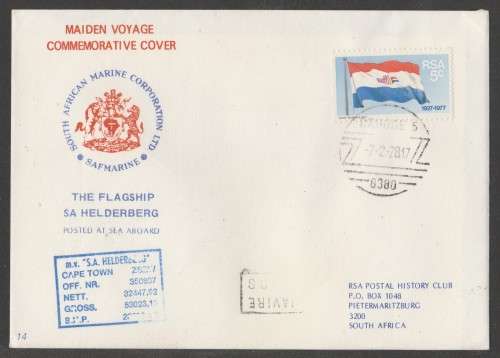 MAIDEN VOYAGE
COMMEMORATIVE COVER
SOUTH AFRICAN MARINE CORPORATION LTD
SAFMARINE
THE FLAGSHIP
SA HELDERBERG
POSTED AT SEA ABOARD
m.v. "S.A. HELDERBERG"
CAPE TOWN
OFF. NR. 350807
NETT. 32447,92
GROSS. 53023,15
14
RSA
5c
1927-1977
-7-2-7817
6380
NAVIRE
RSA POSTAL HISTORY CLUB
P.O. BOX 1048
PIETERMARITZBURG
3200
SOUTH AFRICA